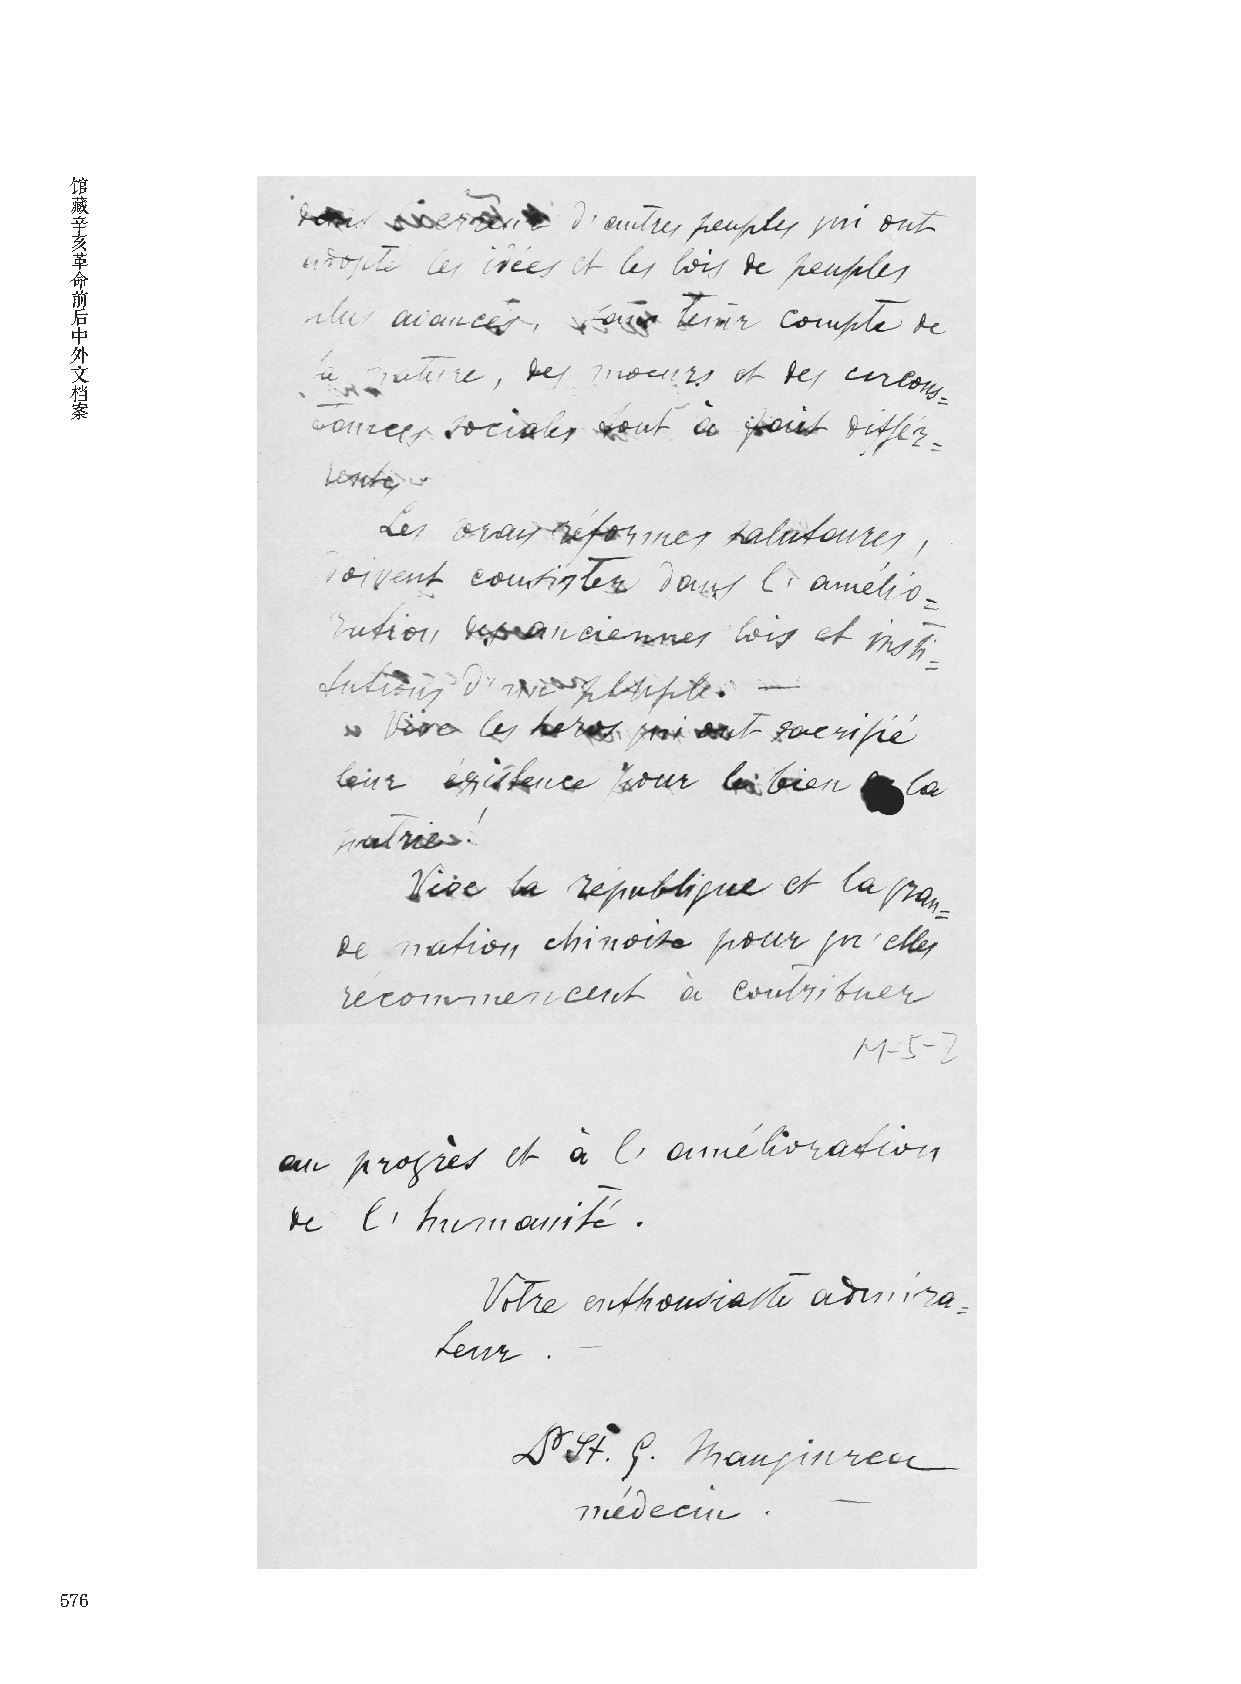 馆藏辛亥革命前后中外文档案
dans d'autres peuples qui ont
adopté les idées et les lois de peuples
plus avancés, sans tenir compte de
la nature, des moeurs et des circons=
tances sociales tout à fait différ=
rentes.
Les vrays réformes salutaires,
doivent consister dans l'amélio=
ration des anciennes lois et insti=
tutions d'un peuple. —
Vive les heros qui ont sacrifié
leur existence pour le bien la
patrie!
Vive la republique et la gran=
de nation chinoise pour qu'elles
récommencent à contribuer
M-5-2
au progrès et à l'amélioration
de l'humanité.
Votre enthousiaste admira=
teur. —
Dr St. G.
médecin. —
576